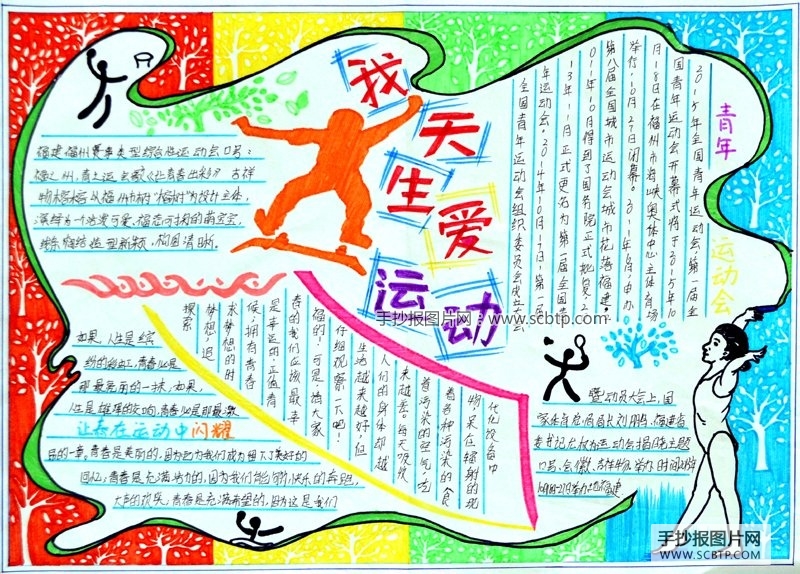 我天生爱运动
青年
运动会
2015年全国青年运动会(第一届全
国青年运动会开幕式将于2015年10
月18日在福州市海峡奥体中心主体育场
举行,10月27日闭幕。2011年8月申办
第八届全国城市运动会城市花落福建。2
011年10月得到了国务院正式批复。2
13年11月正式更名为第一届全国青
年运动会。2014年10月17日,第一届
全国青年运动会组织委员会成立大会
福建福州赛事类型综合性运动会口号:
福之州,青上运 主题《让青春出彩》 吉祥
物榕榕 以福州市树"榕树"为设计主体,
演绎为一个活泼可爱、福态可掬的萌宝宝,
造型新颖,构图清晰。
如果,人生是缤
纷的彩虹,青春必是
那最美丽的一抹;如果,
人生是雄浑的交响,青春必是那最激
让青春在运动中闪耀
昂的一章。青春是美丽的,因为它为我们成为留下了美好的
回忆;青春是充满活力的,因为我们能够快乐的奔跑,
大声的欢笑,青春是充满希望的,因为这是我们
探索
梦想,追
求梦想的时
候,拥有青春
是幸运的,正值青
春的我们应该最幸
福的!可是请大家
仔细观察一下吧!
生活越来越好,但
人们的身体却越
来越差。每天呼吸
着污染的空气,吃
着各种污染的食
物,呆在辐射的现
代化设备中
暨动员大会上,国
家体育总局局长刘鹏,福建省
委书记为运动会揭晓主题
口号、会徽、吉祥物。举办时间2015年
10月18-27日举办地福建
手抄报图片网:www.scbtp.com
手抄报图片网
WWW.SCBTP.COM